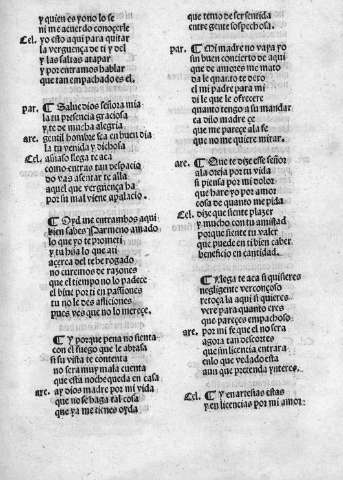 y quien es yono lo se
ni me acuerdo conoçerle
Cel. yo esto aqui para quitar
la verguença de ti y del
y las faltas atapar
y por entramos hablar
que tan empachado es el.
par. ¶ Salue dios señora mia
la tu presencia graciosa
y te de mucha alegria
are. gentil hombre sea en buen dia
la tu venida y dichosa
Cel. asnaso llega te aca
como entras tan despacio
do vas asentar te alla
aquel que vergüença ha
por su mal viene apalacio.
¶ Oyd me entrambos aqui
bien sabes Parmeno amado
lo que yo te prometi
y tu hija lo que aqui
acerca del te he rogado
no curemos de razones
que el tiempo no lo padece
el biue por ti en passiones
tu no le des afliciones
pues ves que no lo mereçe.
¶ Y porque pena no sienta
con el fuego que le abrasa
si su vista te contenta
no sera muy mala cuenta
que esta noche queda en casa
are. ay dios madre por mi vida
que no se haga tal cosa
que ya me tienes oyda
que temo de ser sentida
entre gente sospechosa.
par. ¶ Mi madre no vaya yo
sin buen concierto de aqui
que de amores me mato
da le quanto te
el mi padre para mi
di le que le ofrecere
quanto tengo a su mandar
ea dilo madre çe
que me pareçe ala fe
que no me quiere mirar.
are. ¶ Que te dize esse señor
ala oreja por tu vida
si piensa por mi dolor
que haré yo por amor
cosa de quanto me pida
Cel. dize que siente plazer
y mucho con tu amistad
porque siente tu valer
que puede en ti bien caber
beneficio en cantidad.
¶ Llega te aca si quisieres
negligente verçonçoso
retoça la aqui si quieres
vere para quanto eres
que pareçes empachoso
are. por mi fe que el no sera
agora tan descortes
que sin licencia entrara
enlo que vedado esta
aun que pretenda ynteres.
Cel. ¶ Y en artesias estas
y en licencias por mi amor: